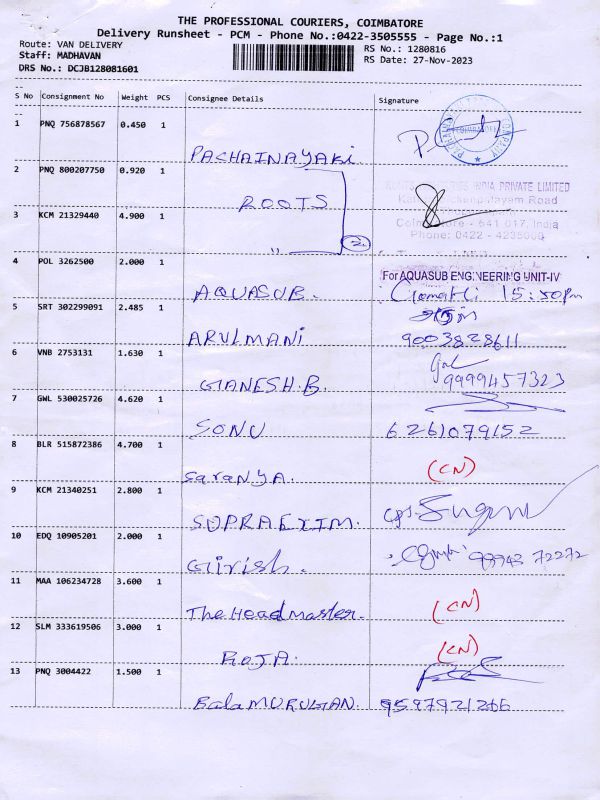 THE PROFESSIONAL COURIERS, COIMBATORE
Delivery Runsheet - PCM - Phone No.:0422-3505555 - Page No.:1
Route: VAN DELIVERY
RS No.: 1280816
Staff: MADHAVAN
RS Date: 27-Nov-2023
DRS No.: DCJB128081601
S No Consignment No Weight PCS Consignee Details Signature
1 PNQ 756878567 0.450 1
PACHAINAYAKI
2 PNQ 800207750 0.920 1
INDIA PRIVATE LIMITED
ROOTS
Road
3 KCM 21329440 4.900 1
641 017, India
Phone: 0422 -
" 2
4 POL 3262500 2.000 1
For AQUASUB ENGINEERING UNIT-IV
AQUASUB. 15:30pm
5 SRT 302299091 2.485 1
ARULMANI 9003828611
6 VNB 2753131 1.630 1
GANESH.B. 9999457323
7 GWL 530025726 4.620 1
SONU 6261079152
8 BLR 515872386 4.700 1
SaraNYA. (CN)
9 KCM 21340251 2.800 1
SUPRAEXIM.
10 EDQ 10905201 2.000 1
Girish. 99943 72272
11 MAA 106234728 3.600 1
The Headmaster. (CN)
12 SLM 333619506 3.000 1
ROJA. (CN)
13 PNQ 3004422 1.500 1
BalaMURUGAN. 9597921266